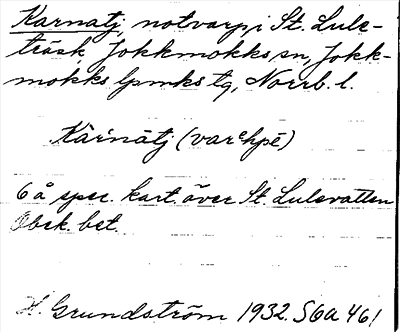 Karnatj, notvarp, i St. Lule-
träsk, Jokkmokks sn, Jokk-
mokks lpmks tg, Norrb. l.
Kàrnàtj (varehpē)
6 å spec. kart. över St. Lulevatten
Obek. bet.
H. Grundström 1932. S6a 461